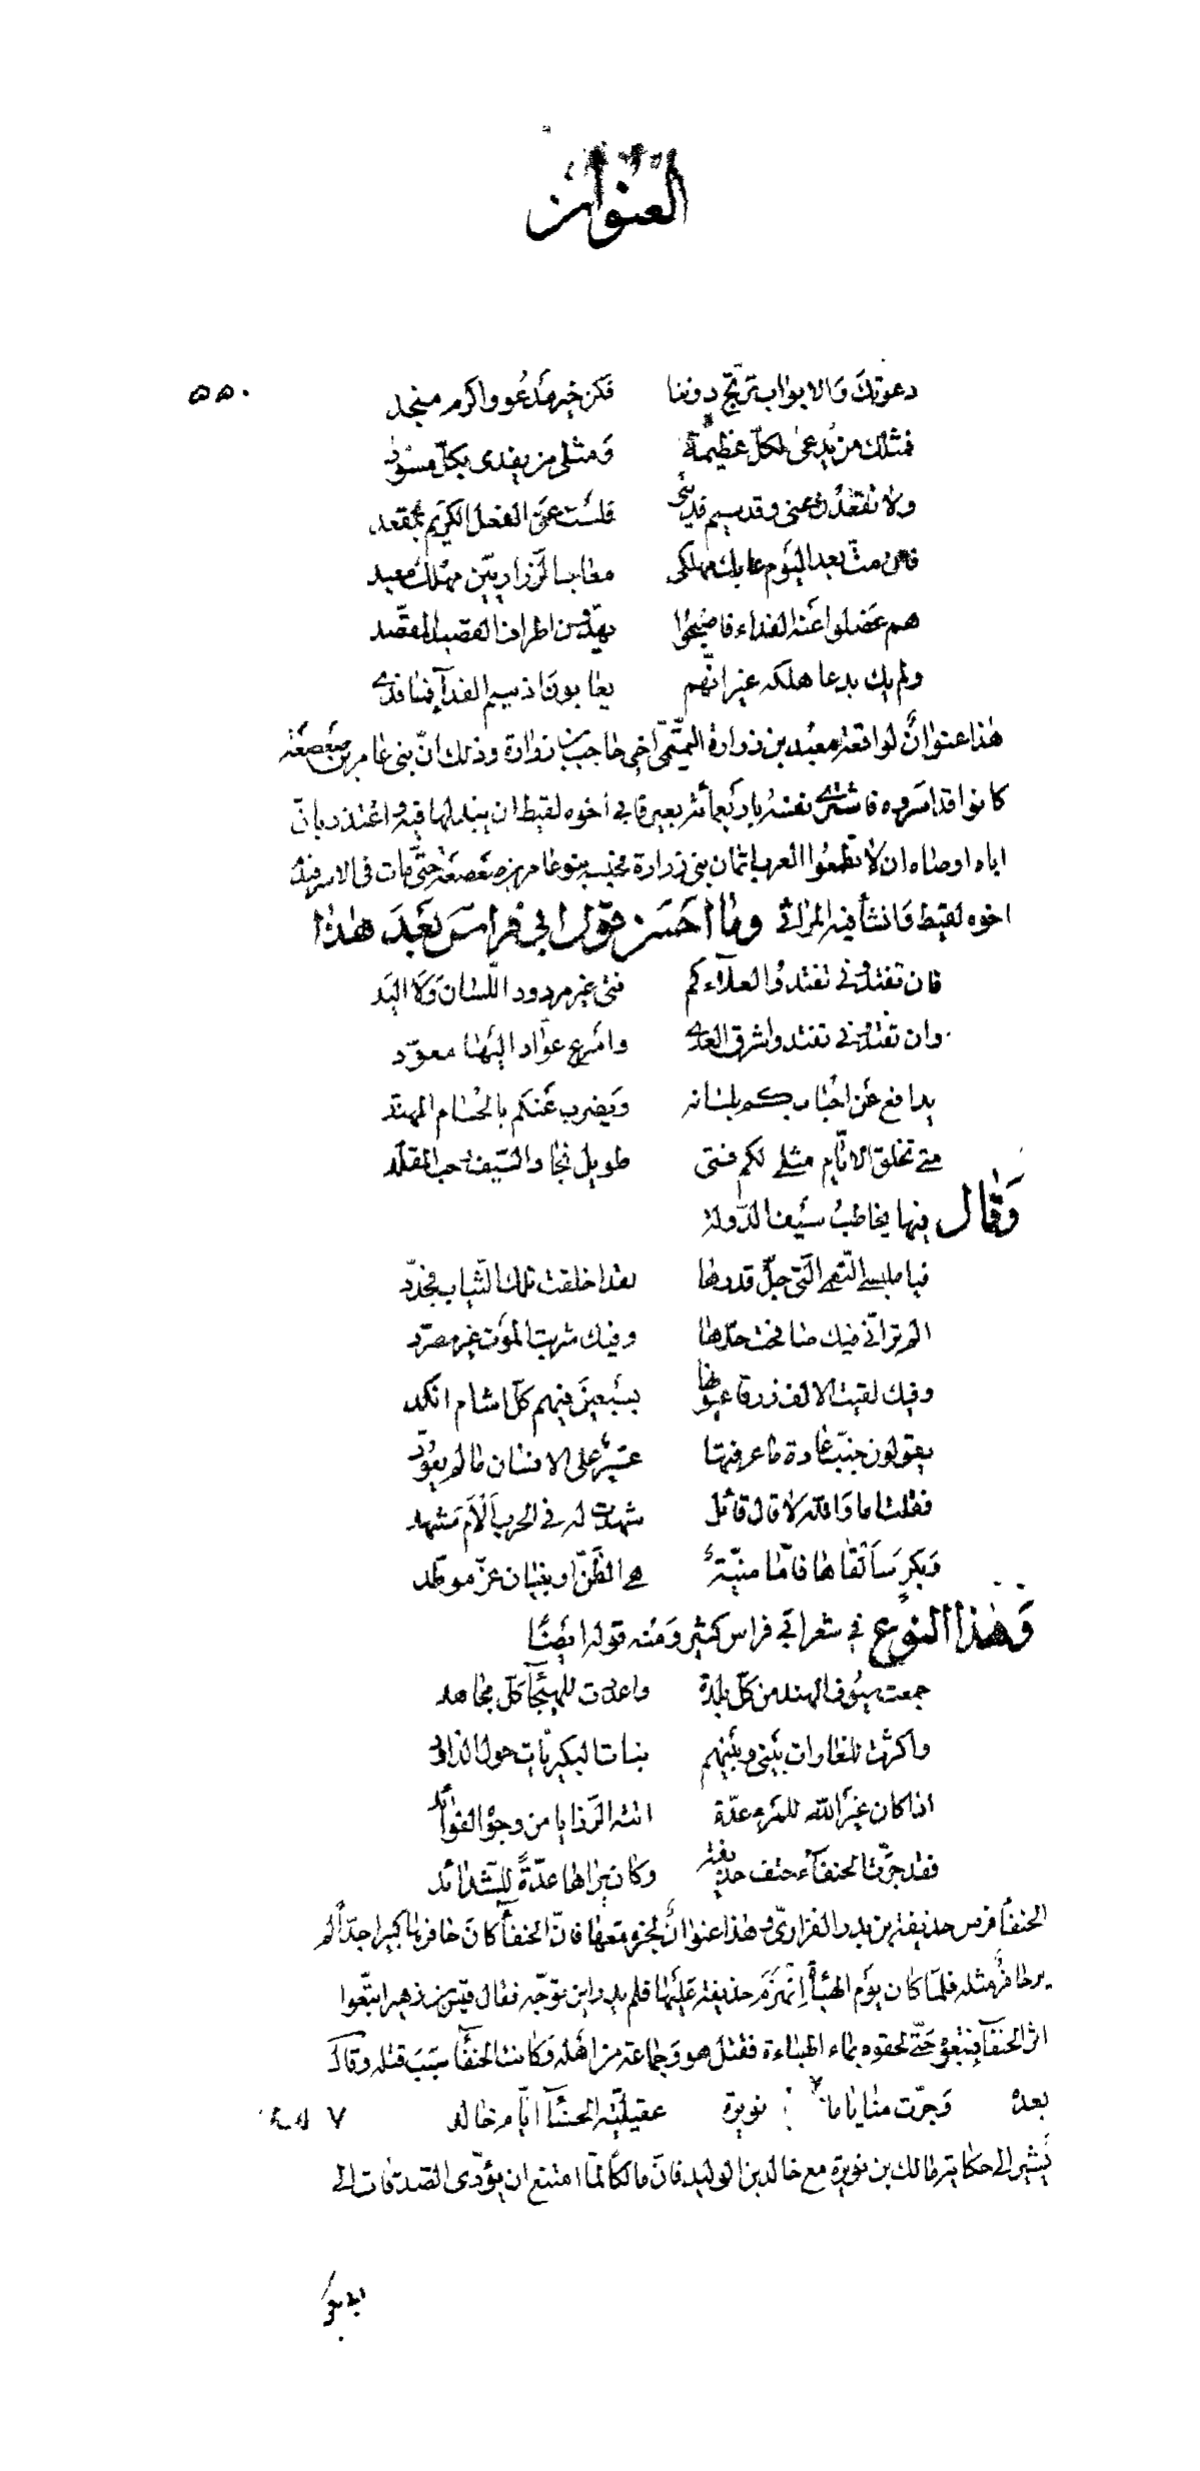 العنوان
دعوتك والابواب ترتج دوننا فكن خير مدعو واكرم منجد ٥٥٠
فمثلك من يدعى لكل عظيمة ومثلي من يفدى بكل مسود
ولا تقعدن عني وقد سيم فديتي فلست عن الفعل الكريم بمقعد
فان مت بعد اليوم عابك مهلكي معاب الزراريين مهلك معبد
هم عضلوا عنه الفداء فاصبحوا يهذون اطراف القصيد المقصد
ولم يك بدعا هلكه غير انهم يعابون اذ سيم الفدآء فما فدي
هذا عنوان لواقعة معبد بن زرارة التميمي اخي حاجب بن زرارة وذلك ان بني عامر بن صعصعة
كانوا قد اسروه فاشترى نفسه باربعمائة بعير فابى اخوه لقيط ان يبذلها فيه واعتذر بانّ
اباه اوصاه ان لا تطعموا العرب اثمان بني زرارة فحبسه بنو عامر بن صعصعة حتى مات في الاسر فيذ
اخوه لقيط فانشأ فيه المراثي وما احسن قول ابي فراس بعد هذا
فان تفتدوني تفتدوا لعلآءكم فتى غير مردود اللسان ولا اليد
وان تفتدوني تفتدوا شرق العلى واسرع عوّاد اليها معوّد
يدافع عن احسابكم بلسانه ويضرب عنكم بالحسام المهند
متى تخلق الايام مثلي لكم فتى طويل نجاد السيف رحب المقلد
وقال فيها يخاطب سيف الدولة
فيا ملبسي النعمى التي جلّ قدرها لقد اخلقت تلك الثياب فجدّد
الم تر اني فيك صافحت حدها وفيك شربت الموت غير مصرّد
وفيك لقيت الالف زرقا عيونها بسبعين فيهم كل اشام انكد
يقولون جنّب عادة ما عرفتها عسير على الانسان ما لم يعوّد
فقلت اما والله لا قال قائل شهدت له في الحرب الأم مشهد
ولكن سالقاها فاما منيّة هي الظنّ او بنيان عزّ موطد
وهذا النوع في شعر ابي فراس كثير ومنه قوله ايضًا
جمعت سيوف الهند من كل بلدة واعددت للهيجآء كل مجاهد
واكثرت للغارات بيني وبينهم بنات البكيريات حول المذاود
اذا كان غير الله للمرء عدّة اتته الرّزايا من وجوه الفوائد
فقد جرّت الحنفآء حتف حذيفة وكان يراها عدّةً للشدائد
الحنفآء فرس حذيفة بن بدر الفزاري وهذا عنوان لخبره معها فانّ الحنفآء كان حافرها كبيرا جدّا لم
ير حافر مثله فلمّا كان يوم الهبأة انهزم حذيفة عليها فلم يدر اين توجّه فقال قيس بن زهير اتبعوا
اثر الحنفآء فتبعوه حتى لحقوه بماء الهباءة فقتل هو وجماعة من اهله وكانت الحنفآء سبب قتله وقال
بعده وجرّت منايا مالك بن نويرة عقيلته الحسنآء ايّام خالد
يشير الى حكاية مالك بن نويرة مع خالد بن الوليد فانّ مالكًا لمّا امتنع ان يؤدّى الصدقات الى